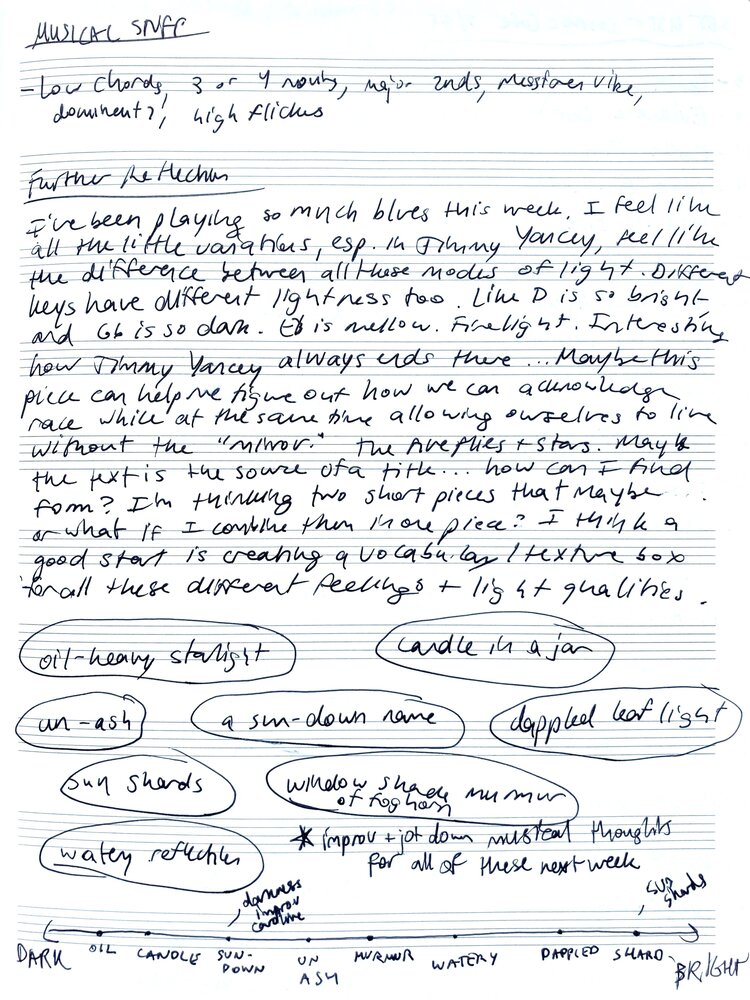 MUSICAL STUFF
- Low chords, 3 or 4 notes, major 2nds, Messiaen vibe,
dominant?, high flickers
Further Reflection
I've been playing so much blues this week. I feel like
all the little variations, esp. in Jimmy Yancey, feel like
the difference between all these modes of light. Different
keys have different lightness too. Like D is so bright
and Gb is so dark. Eb is mellow. Firelight. Interesting
how Jimmy Yancey always ends there... Maybe this
piece can help me figure out how we can acknowledge
race while at the same time allowing ourselves to live
without the "mirror." The fireflies + stars. Maybe
the text is the source of a title... how can I find
form? I'm thinking two short pieces that maybe...
or what if I combine them in one piece? I think a
good start is creating a vocabulary/texture box
for all these different feelings + light qualities.
oil-heavy starlight candle in a jar
un-ash a sun-down name dappled leaf light
sun shards window shade murmur
of foghorn
watery reflection * improv + jot down musical thoughts
for all of these next week
darkness
improv
caroline
sun
shards
DARK OIL CANDLE SUN-DOWN UN ASH MURMUR WATERY DAPPLED SHARD BRIGHT